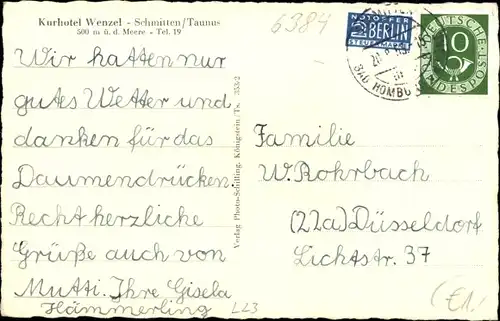 Kurhotel Wenzel - Schmitten/Taunus
500 m ü. d. Meere - Tel. 19
Wir hatten nur
gutes Wetter und
danken für das
Daumendrücken.
Recht herzliche
Grüße auch von
Mutti. Ihre Gisela
Hämmerling
L23
Verlag Photo-Schilling, Königstein/Ts. 353/2
6384
NOTOPFER
2 BERLIN
STEUERMARKE
BAD HOMBU
DEUTSCHE
10
BUNDESPOST
Familie
W. Rohrbach
(22a) Düsseldorf
Lichtstr. 37
(€1,)